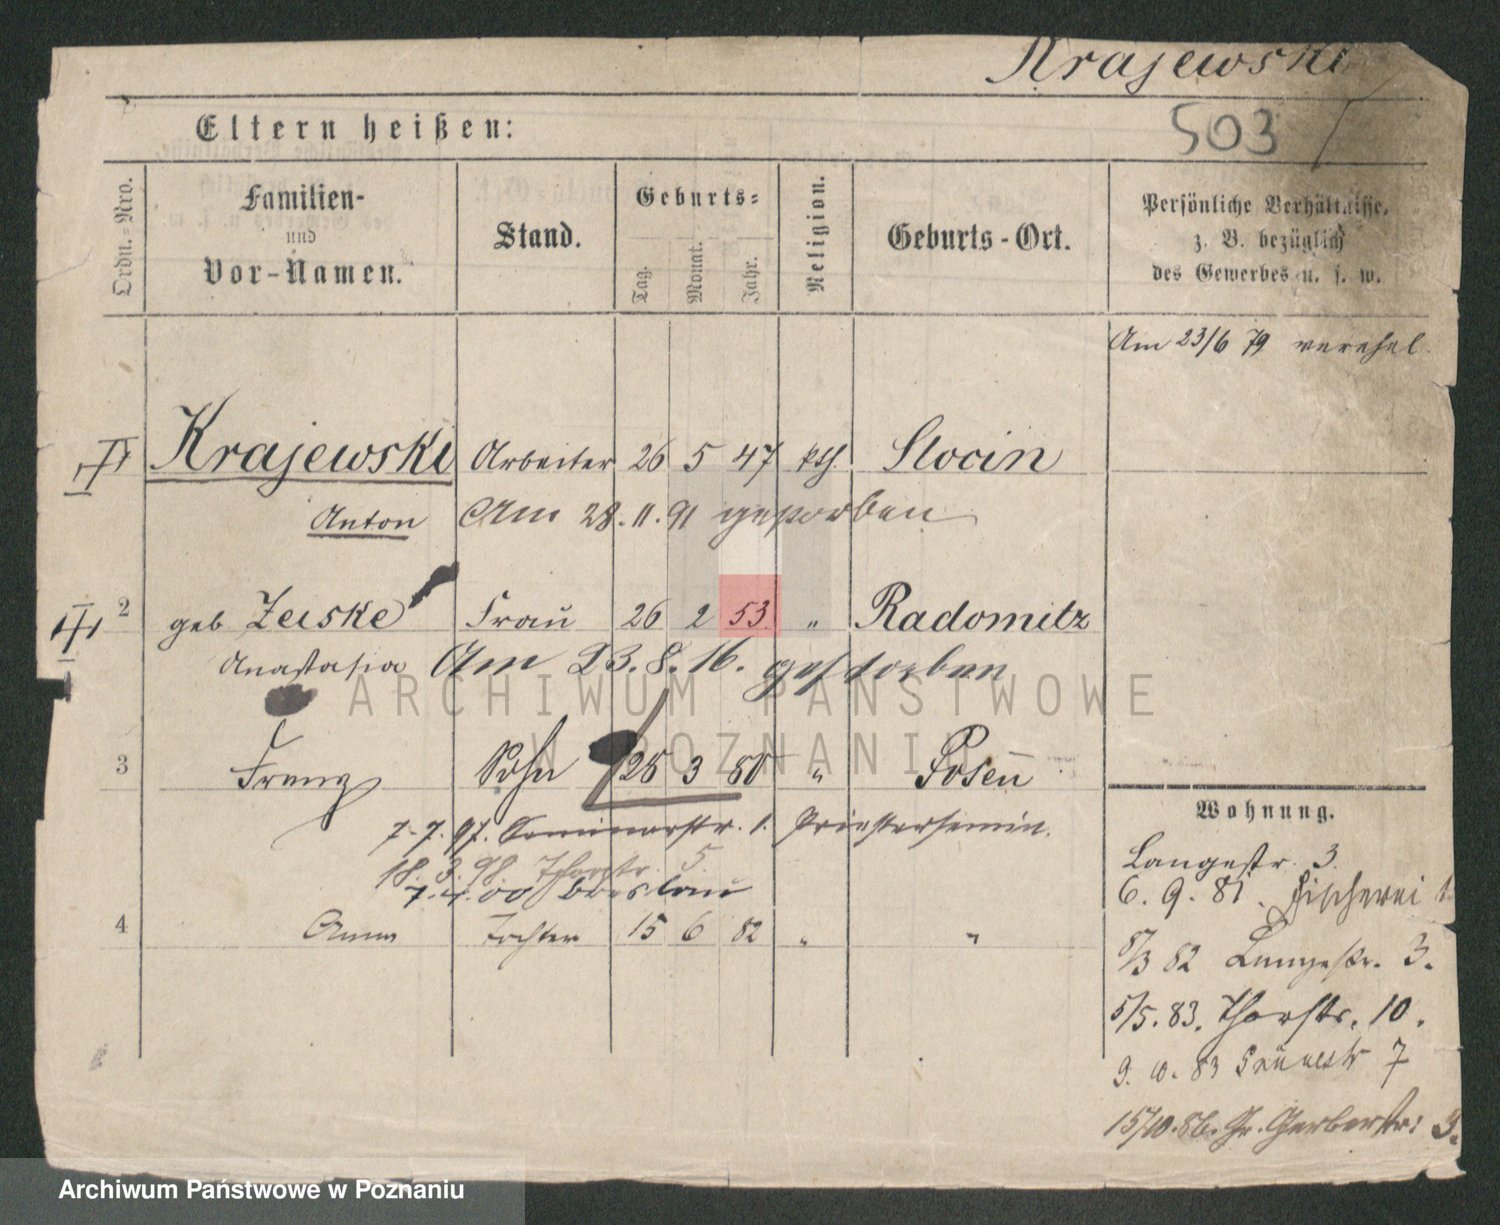 Krajewski
503
Eltern heißen:
Ordn.=Nro.
Familien-
und
Vor-Namen.
Stand.
Geburts=
Tag.
Monat.
Jahr.
Religion.
Geburts-Ort.
Persönliche Verhältnisse,
z. B. bezüglich
des Gewerbes u. s. w.
Am 23/6 79 verehel.
Krajewski Arbeiter 26 5 47 kth. Slocin
Anton Am 28.11.91 gestorben
2 geb Zeiske Frau 26 2 53 " Radomitz
Anastasia Am 23.8.16. gestorben
3 Franz Sohn 28 3 80 " Posen
7.7.97. Seminarstr. 1. Priestersemin.
18.3.98 Thorstr. 5.
7.4.00 Breslau
4 Anna Tochter 15 6 82 " "
Wohnung.
Langestr. 3.
6.9.81. Fischerei
8/3 82 Langestr. 3.
5/5.83. Thorstr. 10.
9.10.83 7
15/10.86. Gr. Gerberstr: 3.
ARCHIWUM PAŃSTWOWE
W POZNANIU
Archiwum Państwowe w Poznaniu